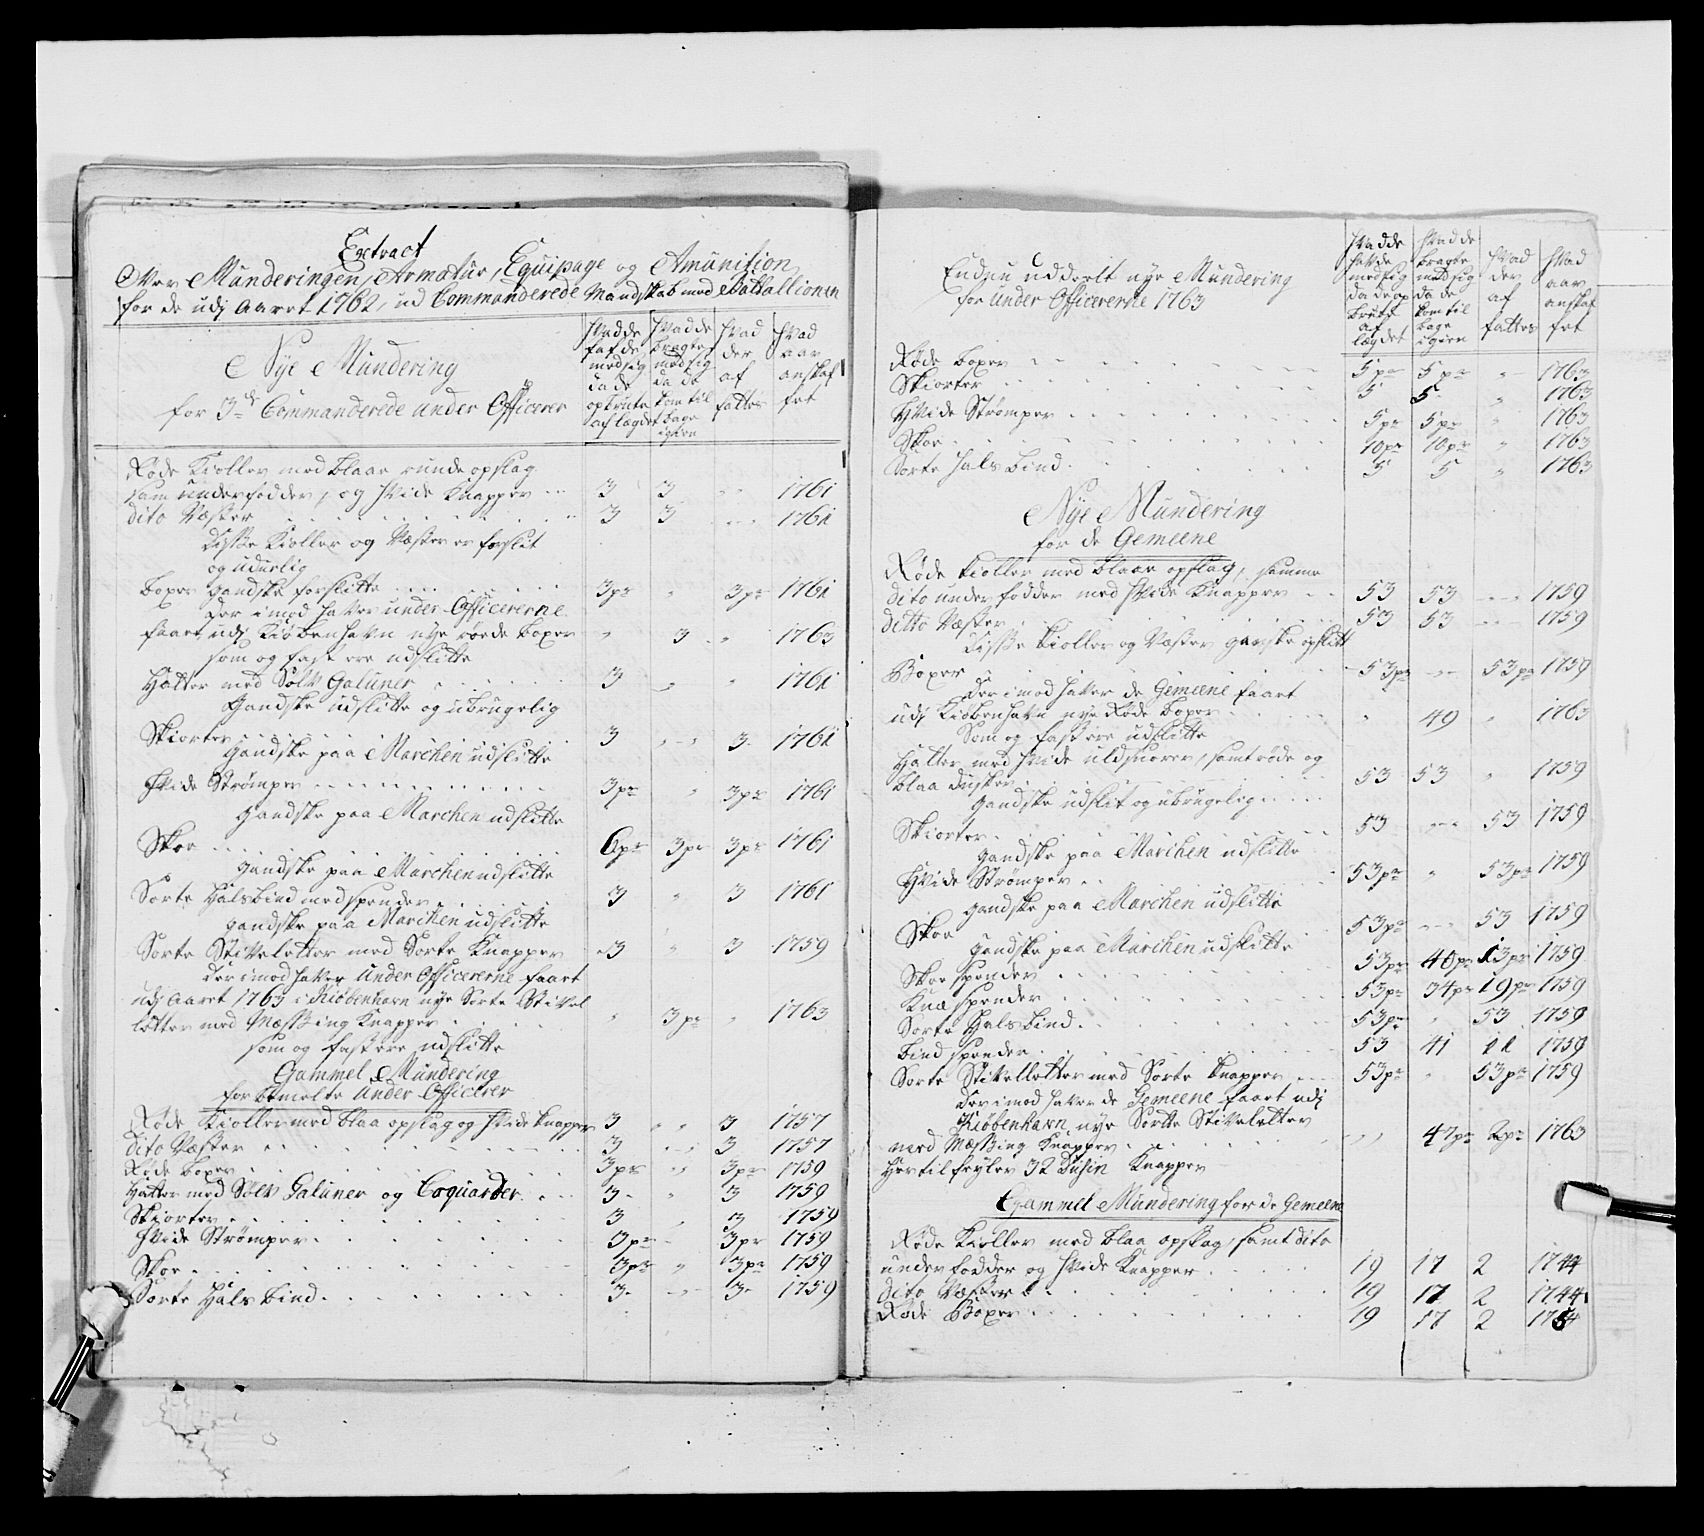 Extract
Over Munderingen, Armatur, Equipage og Amunition
for de udj Aaret 1762, ud Commanderede Mandskab med Battallionen
Nye Mundering
for 3de Commanderede under Officerer
hvad de hafde med sig da de opbrute af lægdet
hvad de bragte med sig da de kom til bage igien
hvad der af fattes
hvad aar anskaffet
Røde Kioller med blaae runde opslag
sam underfodder, og hvide Knapper 3 3 " 1761
dito Væster 3 3 " 1761
Disse Kioller og Væster er forslit
og udurlig
boxer gandske forslitte 3pr " 3pr 1761
Der imod haver under Officererne
faaet udj Kiøbenhavn nye røde boxer " 3 " 1763
som og fast ere udslitte
Hatter med Sølv Galuner 3 " " 1761
Gandske udslitte og ubrugelig
Skiorter 3 " 3 1761
Gandske paa Marchen udslitte
Hvide Strømper 3pr " 3pr 1761
gandske paa Marchen udslitte
Skoe 6pr 3pr 3pr 1761
gandske paa Marchen udslitte
Sorte Halsbind med spender 3 " 3 1761
gandske paa Marchen udslitte
Sorte Stiveletter med Sorte Knapper 3 " 3 1759
Der imod haver under Officererne faaet
udj Aaret 1763 i Kiøbenhavn nye Sorte Stivel
letter med Mæssing Knapper " 3pr " 1763
som og fast ere udslitte
Gammel Mundering
for bemelte Under Officerer
Røde Kioller med blaa opslag og hvide Knapper 3 " 3 1757
dito Væster 3 " 3 1757
Røde boxer 3pr " 3pr 1759
Hatter med Sølv Galuner og Coquarder 3 " 3 1759
Skiorter 3 " 3 1759
Hvide Strømper 3pr " 3pr 1759
Skoe 3pr " 3pr 1759
Sorte Hals bind 3 " 3 1759
Endnu uddeelt nye Mundering
for under Officererne 1763
hvad de hafde med sig da de op brute af lægdet
hvad de bragte med sig da de kom til bage igien
hvad der af fattes
hvad aar anskaffet
Røde boxer 5pr 5pr " 1763
Skiorter 5 5 " 1763
Hvide Strømper 5pr 5pr " 1763
Skoe 10pr 10pr " 1763
Sorte Hals bind 5 5 " 1763
Nye Mundering
for de Gemeene
Røde Kioller med blaae opslag, samme
dito under fodder med hvide Knapper 53 53 " 1759
ditto Væster 53 53 " 1759
Disse Kioller og Væster ganske opslitt
Boxer 53pr " 53pr 1759
Der imod haver de Gemeene faaet
udj Kiøbenhavn nye Røde boxer " 49 " 1763
Som og fast ere udslitte
Hatter med hvide uldsnorer, samt røde og
blaa dusker 53 53 " 1759
Gandske udslit og ubrugelig
Skiorter 53 " 53 1759
gandske paa Marchen udslitte
Hvide Strømper 53pr " 53pr 1759
gandske paa Marchen udslitte
Skoe 53pr " 53 1759
gandske paa Marchen udslitte
Skoe spender 53pr 40pr 13pr 1759
Knæ spender 53pr 34pr 19pr 1759
Sorte Hals bind 53pr " 53 1759
bind spender 53 41 11 1759
Sorte Stivelletter med Sorte Knapper 53pr " 53pr 1759
Der imod haver de Gemeene faaet udj
Kiøbenhavn nye Sorte Stiveletter
med Mæssing Knapper " 47pr 2pr 1763
Her til feyler 32 Dusin Knapper
Gammel Mundering for de Gemeene
Røde Kioller med blaa opslag, samt dito
under fodder og hvide Knapper 19 17 2 1744
dito Væster 19 17 2 1744
Røde Boxer 19 17 2